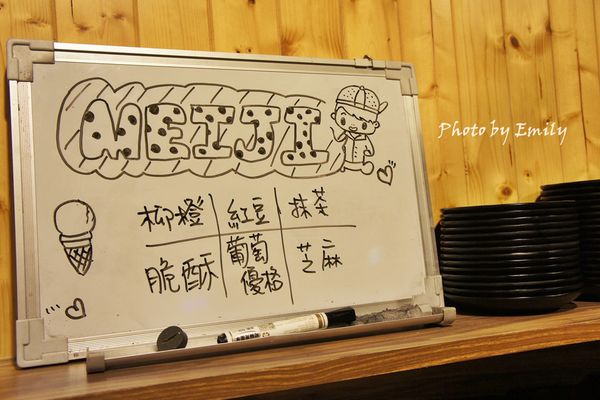 MEIJI
Photo by Emily
柳橙 紅豆 抹茶
脆酥 葡萄優格 芝麻